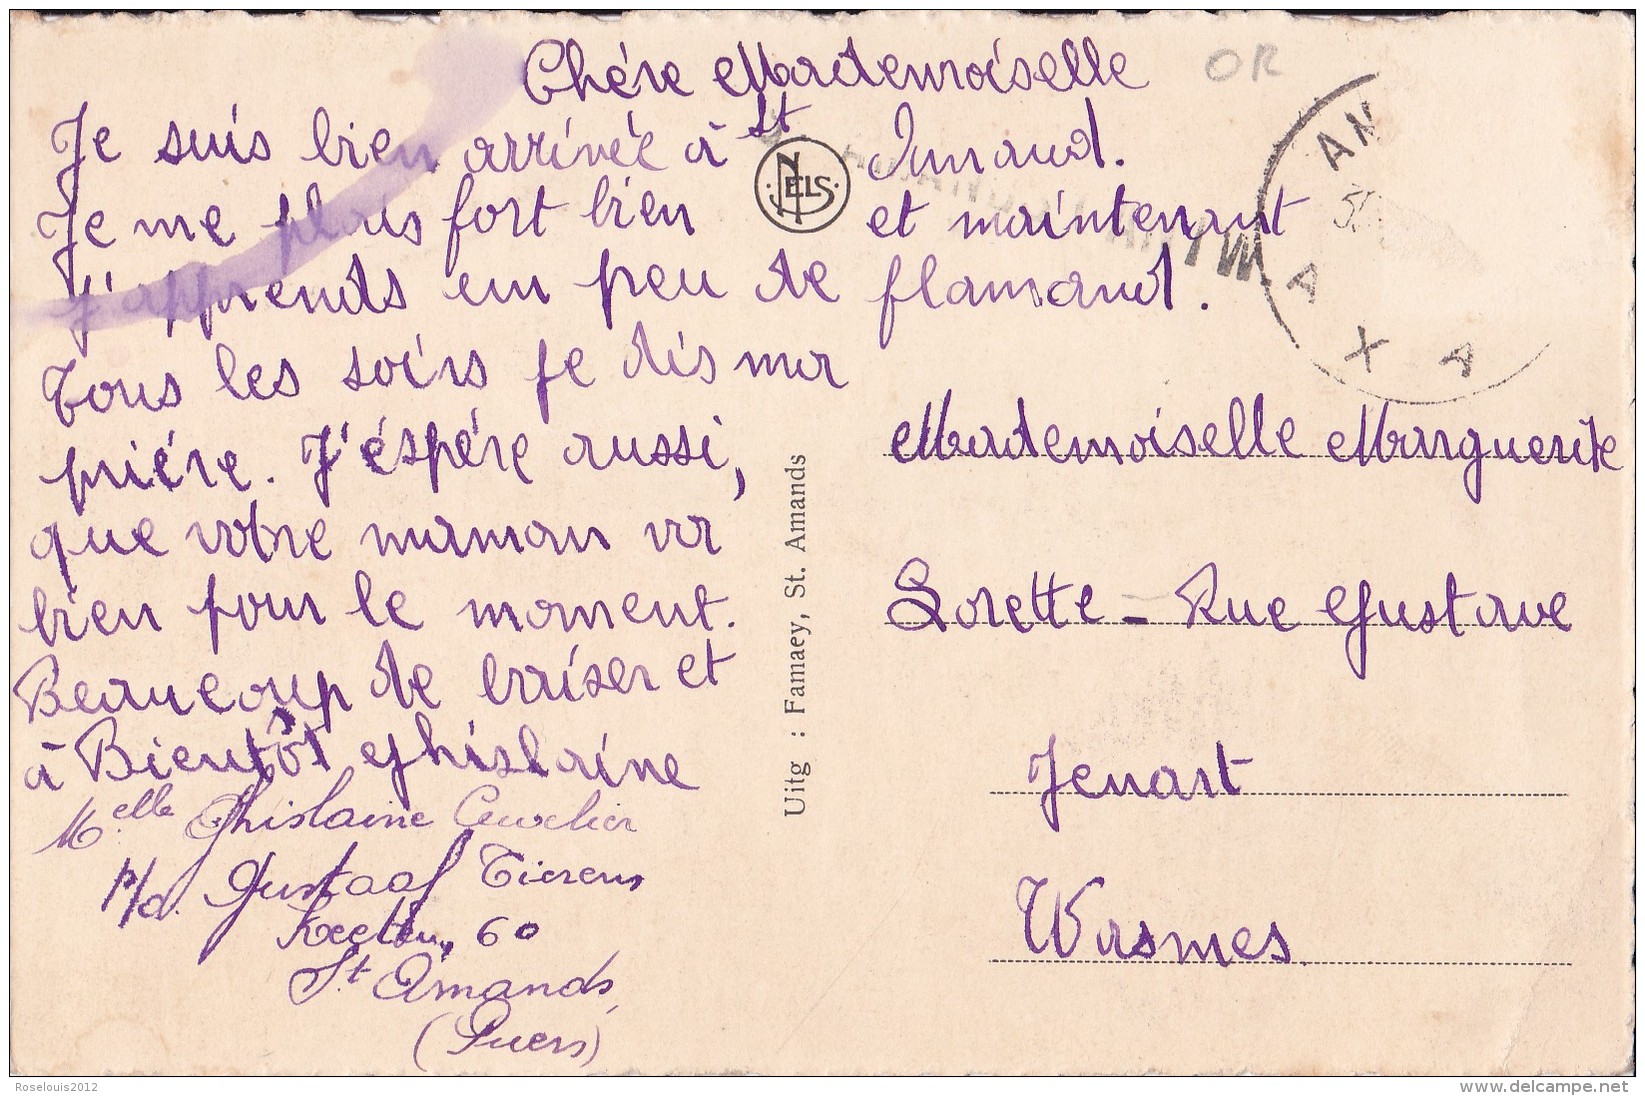 Chére Mademoiselle
OR
Je suis bien arrivée à St Amand.
Je me plais fort bien et maintenant
J'apprends un peu de flamand.
Tous les soirs je dis ma
priére. J'éspére aussi,
que votre maman va
bien pour le moment.
Beaucoup de baiser et
à Bientôt Ghislaine
Melle Ghislaine Cuvelier
p/a. Gustaaf Tierens
60
St Amands
(Puers)
NELS
Uitg : Famaey, St. Amands
Mademoiselle Marguerite
Lorette - Rue Gustave
Jenart
Wasmes
AN
A X A
Roselouis2012
www.delcampe.net